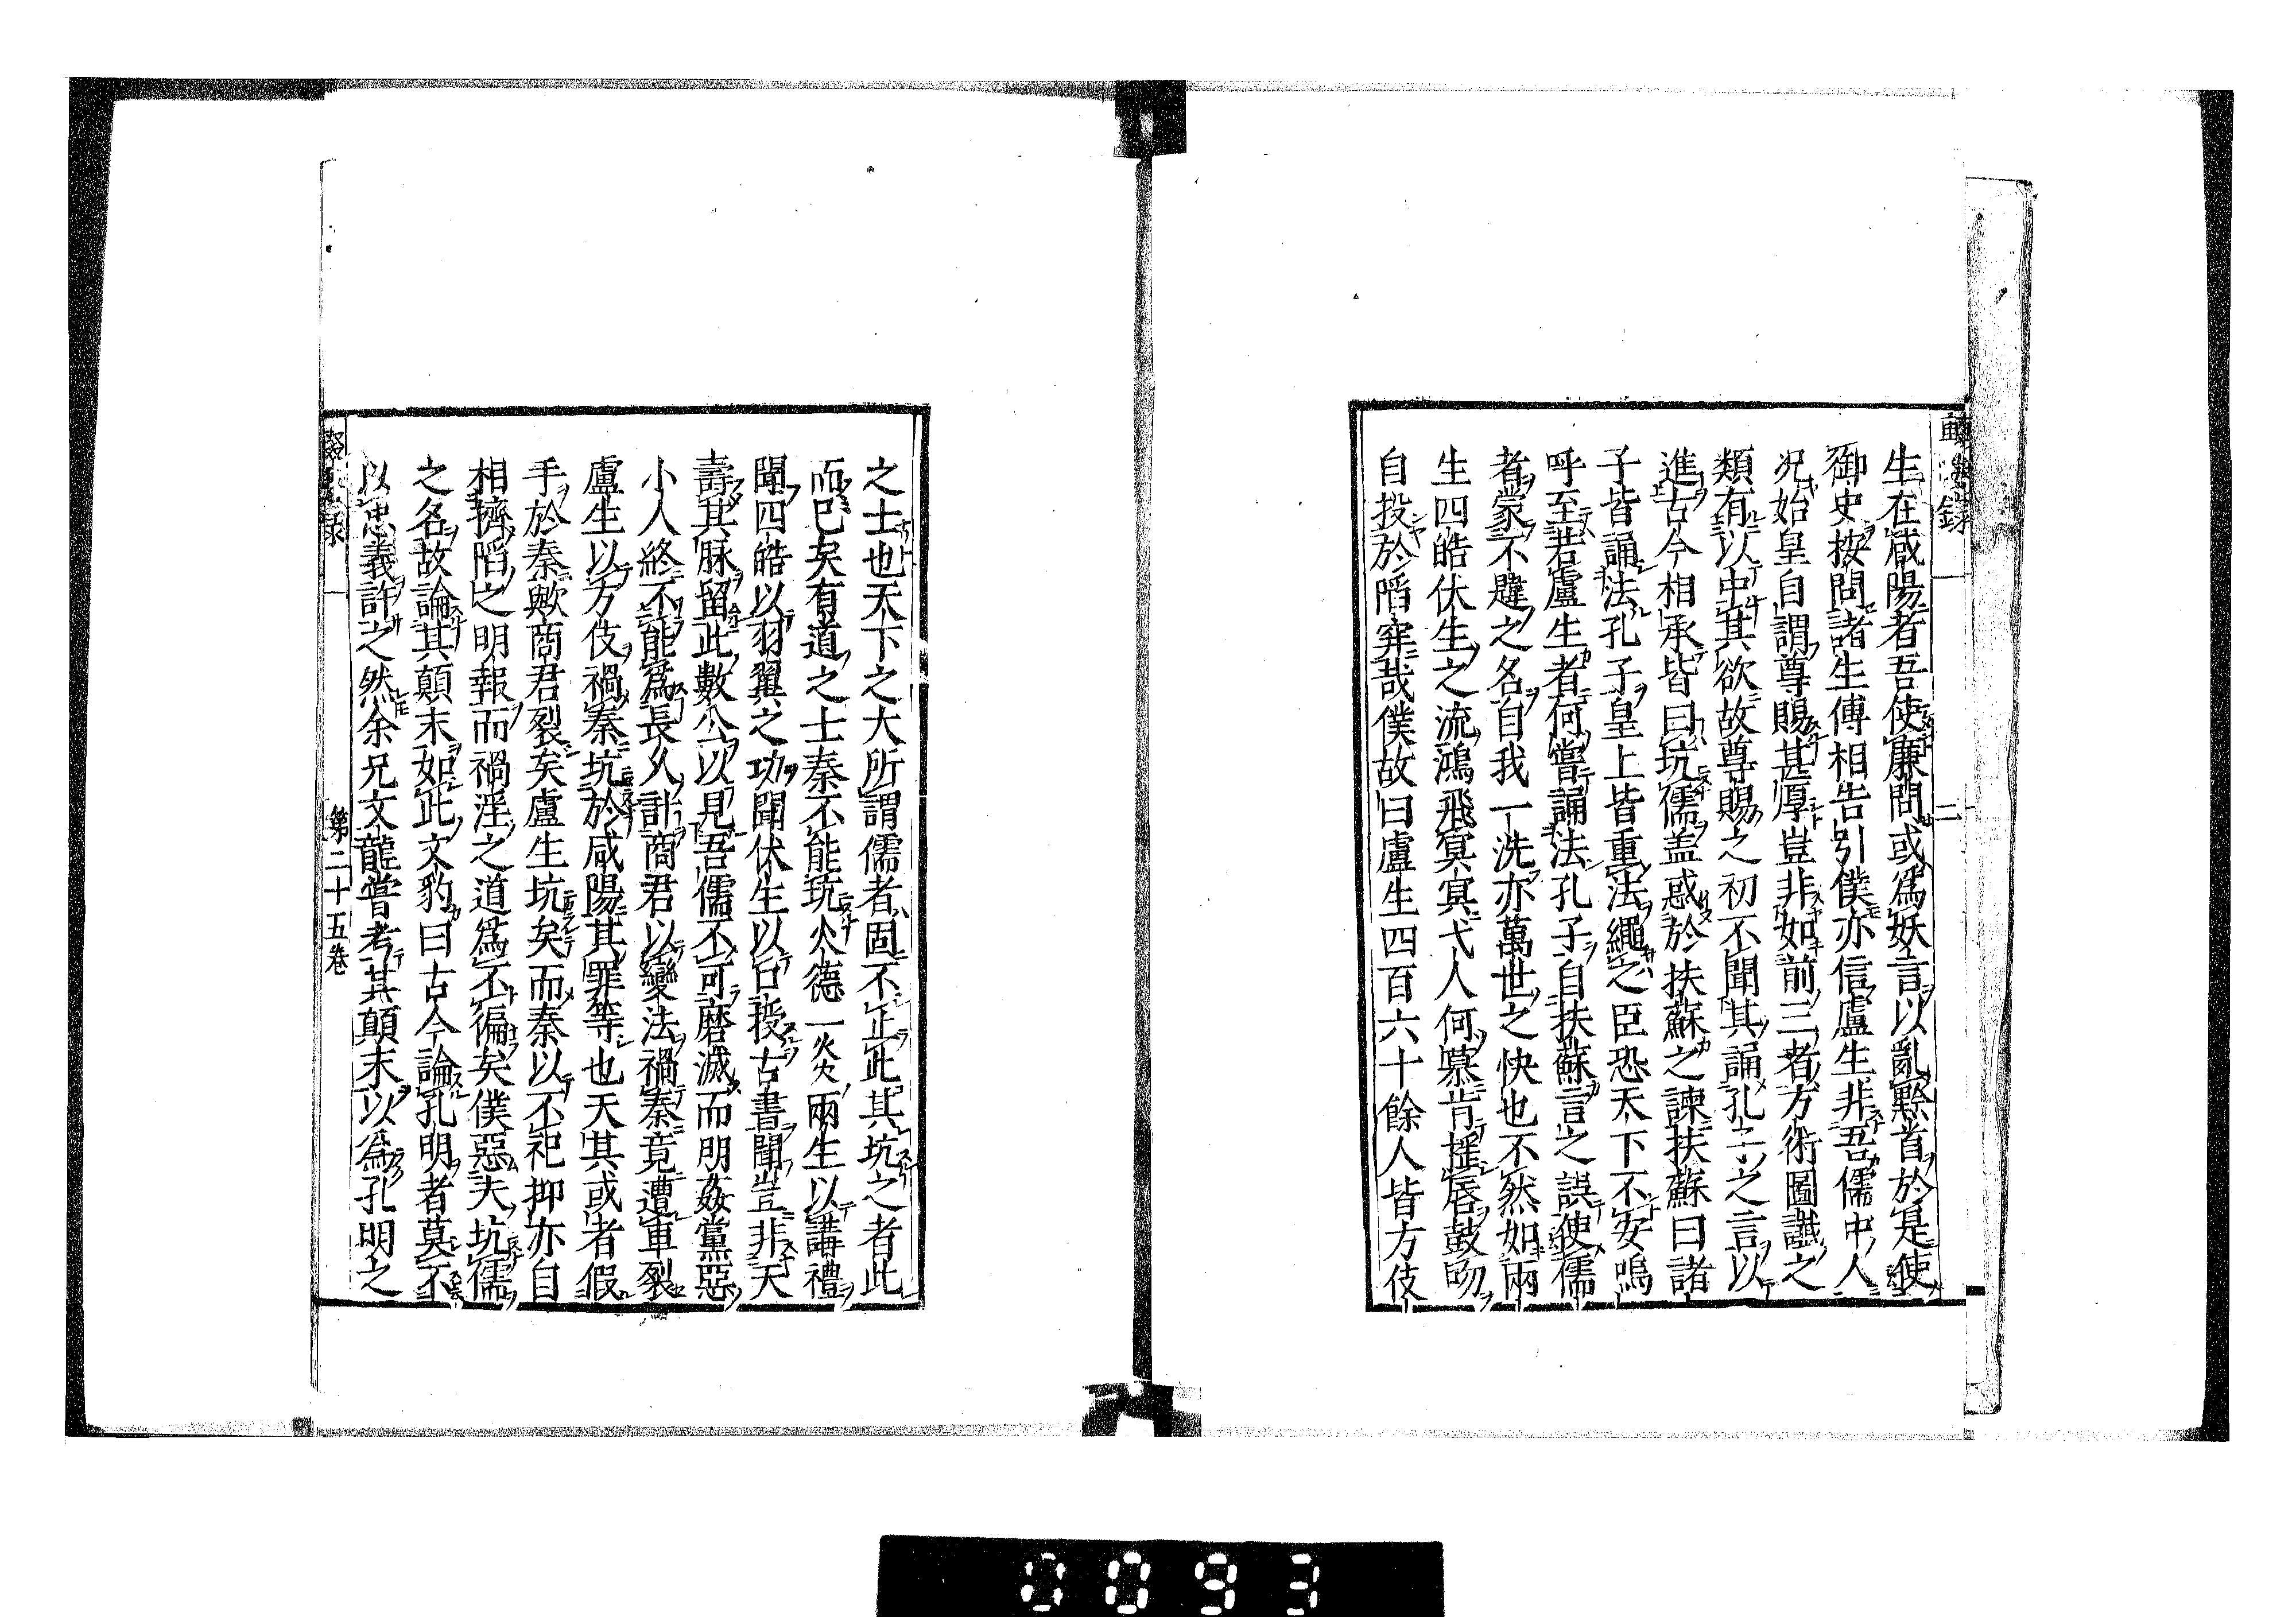 生在咸陽者吾使廉問或爲妖言以亂黔首於是使
御史按問諸生傳相告引僕亦信盧生非吾儒中人
况始皇自謂尊賜甚厚豈非如前三者方術圖讖之
類有以中其欲故尊賜之初不聞其誦孔子之言以
進古今相承皆曰坑儒盖惑於扶蘇之諫扶蘇曰諸
子皆誦法孔子皇上皆重法繩之臣恐天下不安嗚
呼至若盧生者何嘗誦法孔子自扶蘇言之誤使儒
者蒙不韙之名自我一洗亦萬世之快也不然如兩
生四皓伏生之流鴻飛冥冥弋人何慕肯摇唇鼓吻
自投於陷穽哉僕故曰盧生四百六十餘人皆方伎
之士也天下之大所謂儒者固不止此其坑之者此
而已矣有道之士秦不能坑火德一炎兩生以講禮
聞四皓以羽翼之功聞伏生以口授古書聞豈非天
壽其脉留此數公以見吾儒不可磨滅而明姦黨惡
小人終不能爲長久計商君以變法禍秦竟遭車裂
盧生以方伎禍秦坑於咸陽其罪等也天其或者假
手於秦歟商君裂矣盧生坑矣而秦以不祀抑亦自
相擠陷之明報而禍淫之道爲不徧矣僕惡夫坑儒
之名故論其顛末如此文豹曰古今論孔明者莫不
以忠義許之然余兄文龍嘗考其顛末以爲孔明之
第二十五卷
0093